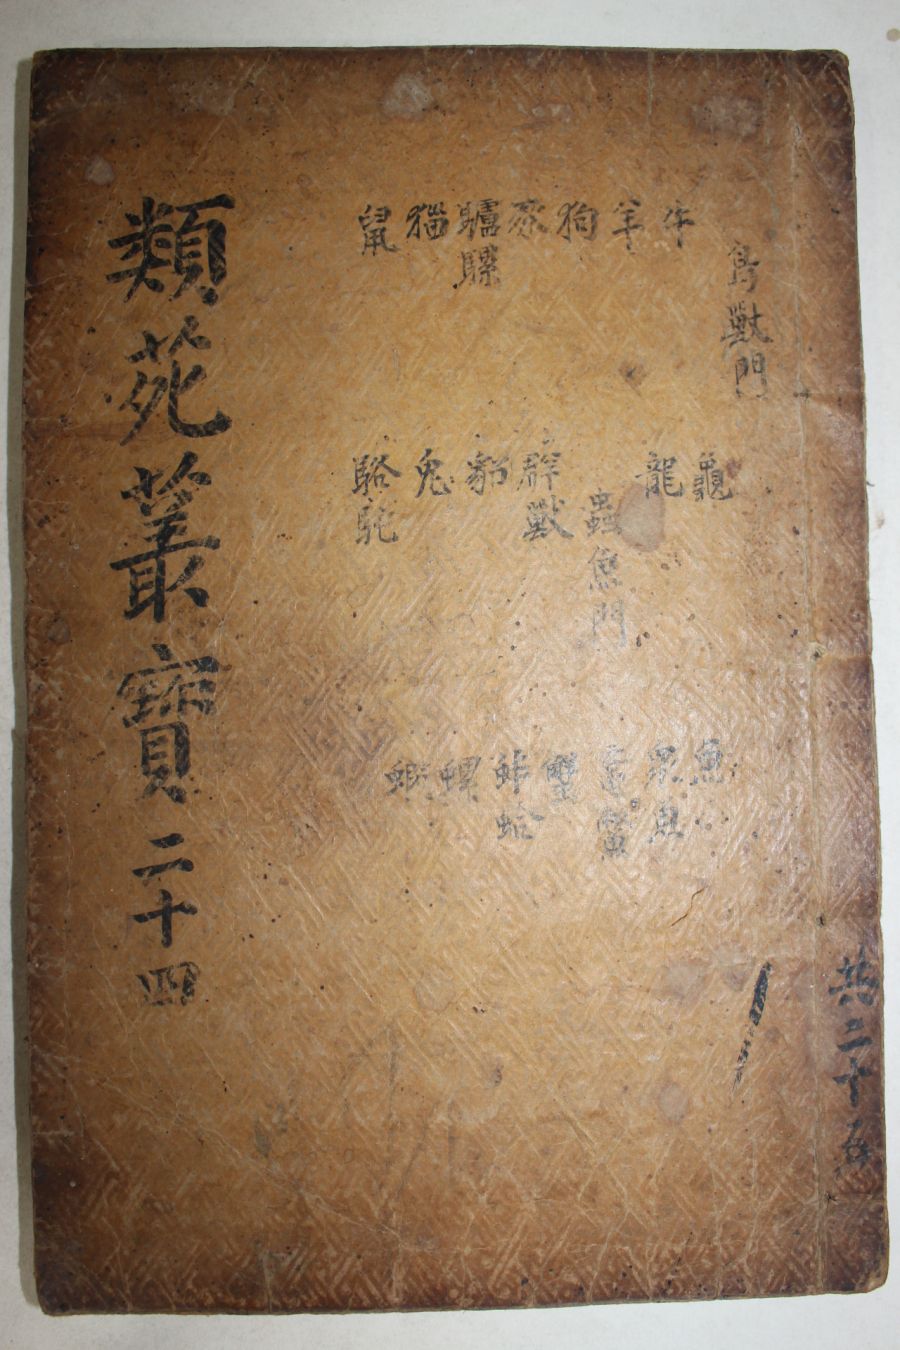 共二十五
鳥獸門
牛
羊
狗
豕
驢騾
猫
鼠
龜
龍
蟲魚門
群獸
貂
兎
駱駝
魚
眾魚
黿鼈
蟹
蚌蛤
螺
蝦
類苑叢寶二十四